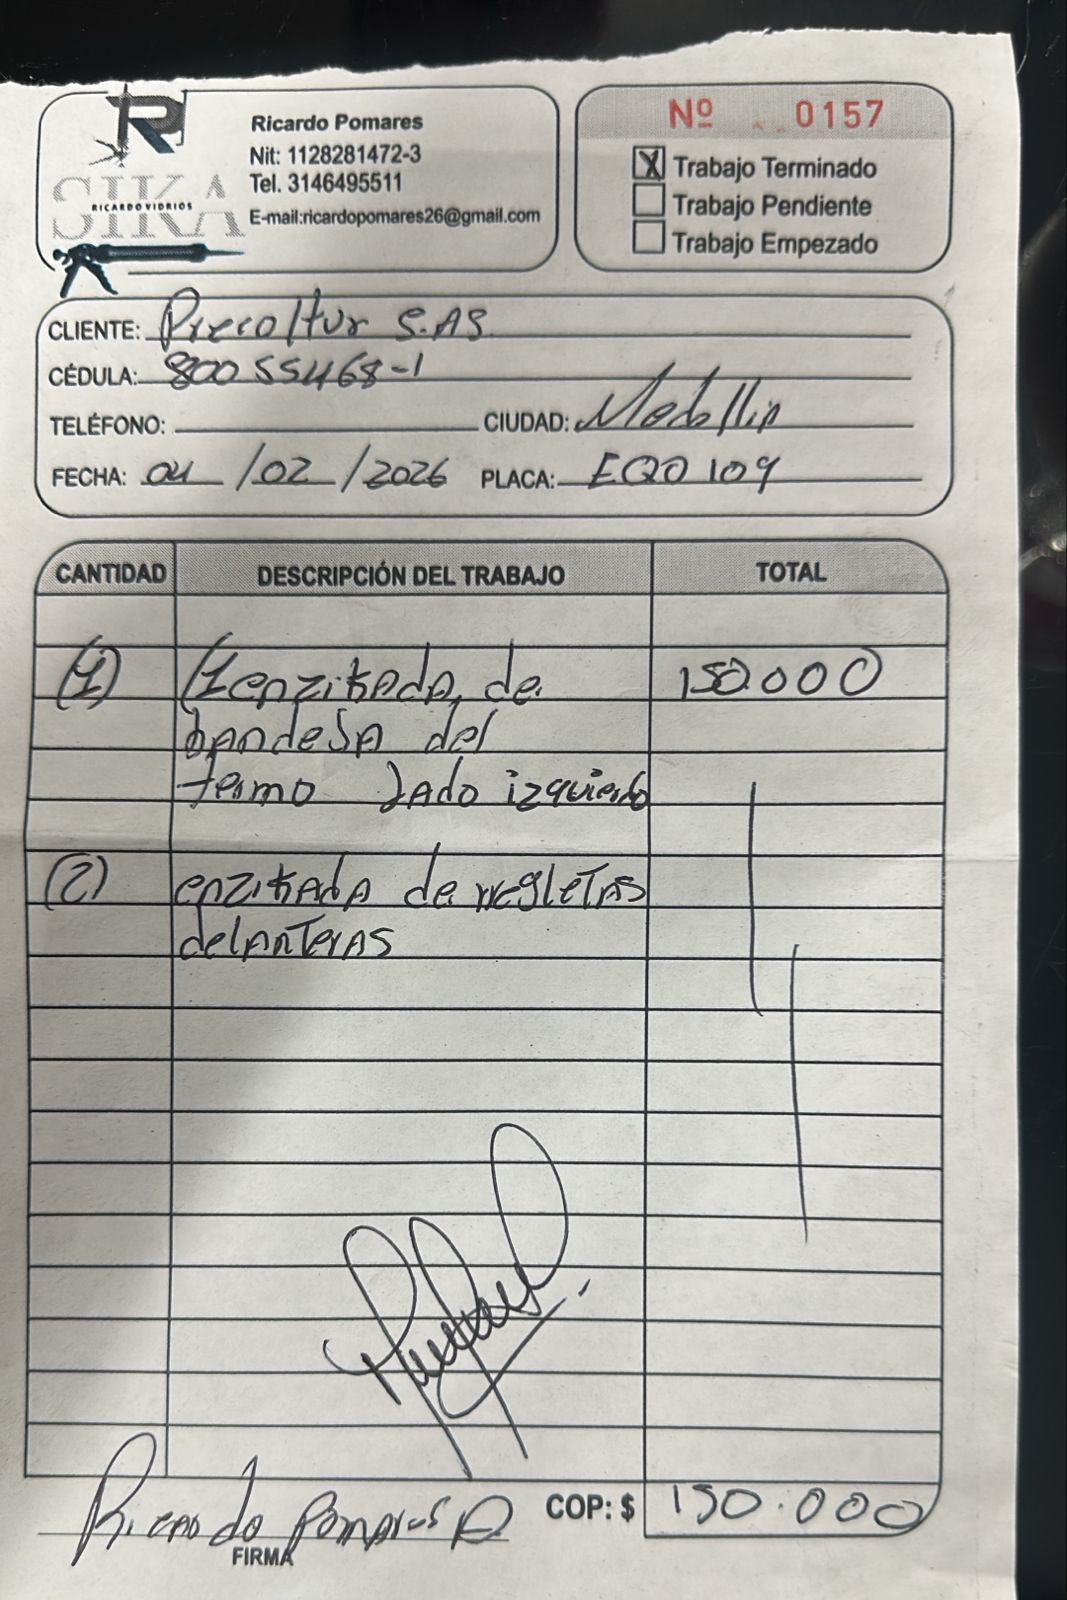 Ricardo Pomares
Nit: 1128281472-3
Tel. 3146495511
E-mail:ricardopomares26@gmail.com
SIKA
RICARDO VIDRIOS
Nº 0157
X Trabajo Terminado
Trabajo Pendiente
Trabajo Empezado
CLIENTE: Precoltur S.AS.
CÉDULA: 80055468-1
TELÉFONO: CIUDAD: Medellin
FECHA: 04/02/2026 PLACA: EQO 109
CANTIDAD DESCRIPCIÓN DEL TRABAJO TOTAL
(1) enzikada de 150.000
bandeja del
termo lado izquierdo
(2) enzikada de regletas
delanteras
Ricardo Pomares COP: $ 150.000
FIRMA